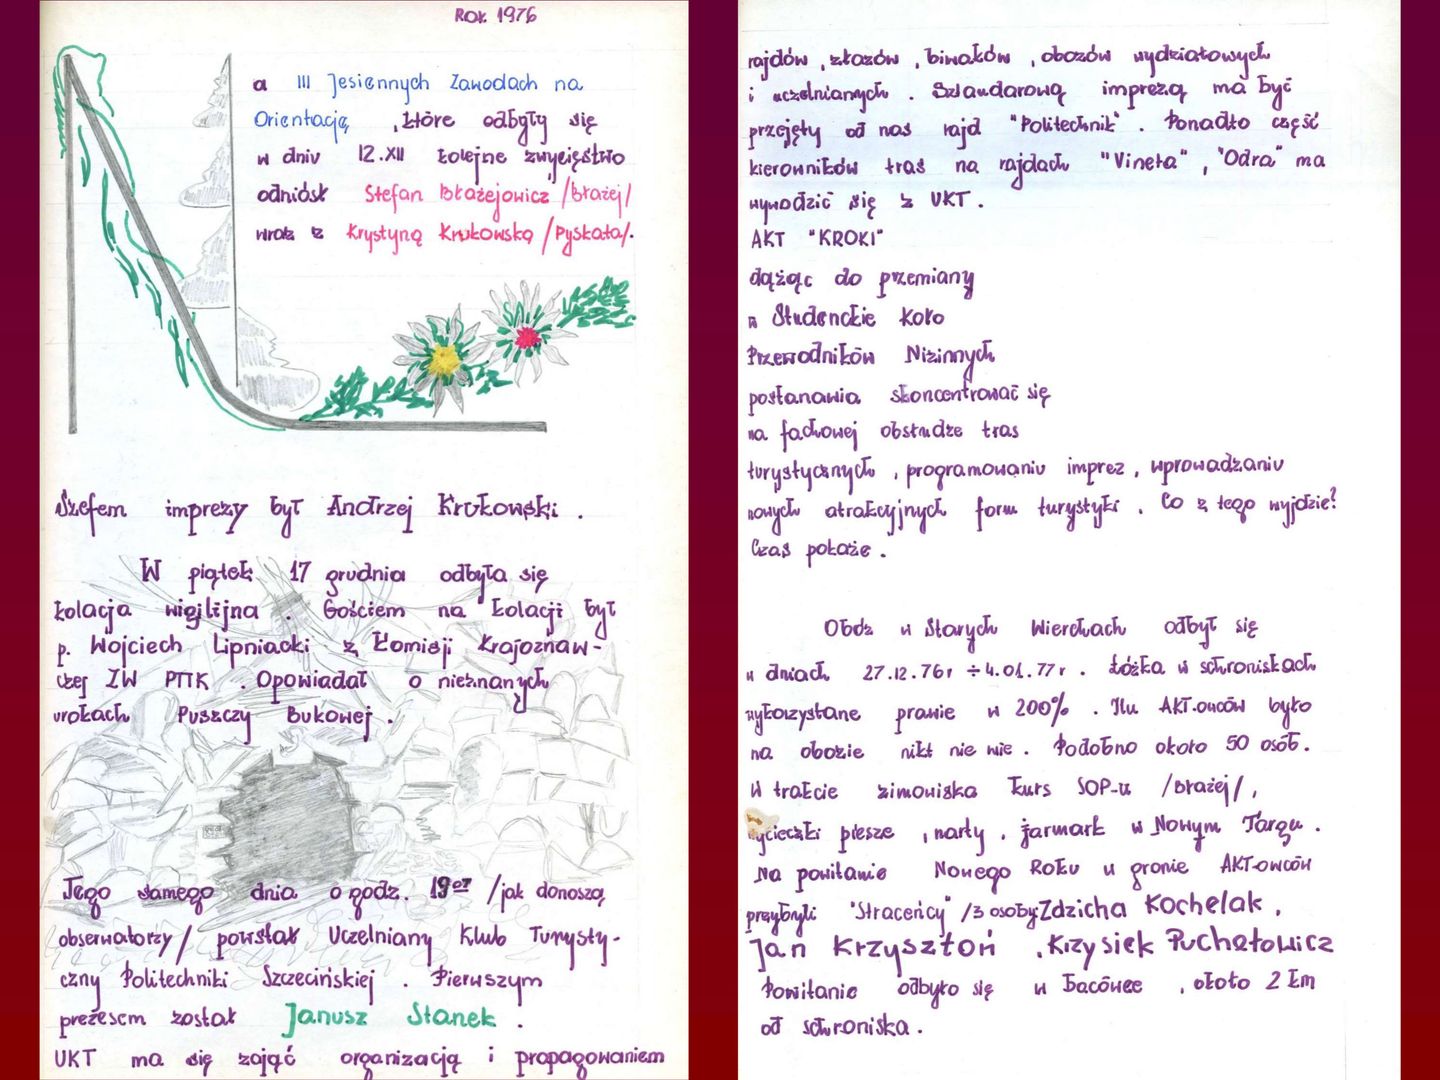 ROK 1976
a III Jesiennych Zawodach na
Orientację , które odbyły się
w dniu 12.XII kolejne zwycięstwo
odniósł Stefan Błażejowicz /Błażej/
wraz z Krystyną Krukowską /Pyskata/.
Szefem imprezy był Andrzej Krukowski .
W piątek 17 grudnia odbyła się
kolacja wigilijna . Gościem na kolacji był
p. Wojciech Lipniacki z Komisji Krajoznaw-
czej ZW PTTK . Opowiadał o nieznanych
urokach Puszczy Bukowej .
Tego samego dnia o godz. 19⁰⁷ /jak donoszą
obserwatorzy/ powstał Uczelniany Klub Turysty-
czny Politechniki Szczecińskiej . Pierwszym
prezesem został Janusz Stanek .
UKT ma się zająć organizacją i propagowaniem
rajdów , złazów , biwaków , obozów wydziałowych
i uczelnianych . Sztandarową imprezą ma być
przejęty od nas rajd "Politechnik" . Ponadto część
kierowników tras na rajdach "Vineta" , "Odra" ma
wywodzić się z UKT .
AKT "KROKI"
dążąc do przemiany
w Studenckie Koło
Przewodników Nizinnych
postanawia skoncentrować się
na fachowej obsłudze tras
turystycznych , programowaniu imprez , wprowadzaniu
nowych atrakcyjnych form turystyki . Co z tego wyjdzie?
Czas pokaże .
Obóz w Starych Wierchach odbył się
w dniach 27.12.76r ÷ 4.01.77r . Łóżka w schroniskach
wykorzystane prawie w 200% . Ilu AKT-owców było
na obozie nikt nie wie . Podobno około 50 osób.
W trakcie zimowiska kurs SOP-u /Błażej/ ,
wycieczki piesze , narty , jarmark w Nowym Targu .
Na powitanie Nowego Roku w gronie AKT-owców
przybyli "Straceńcy" /3 osoby: Zdzicha Kochelak ,
Jan Krzysztoń , Krzysiek Puchatowicz
Powitanie odbyło się w Bacówce , około 2 km
od schroniska .